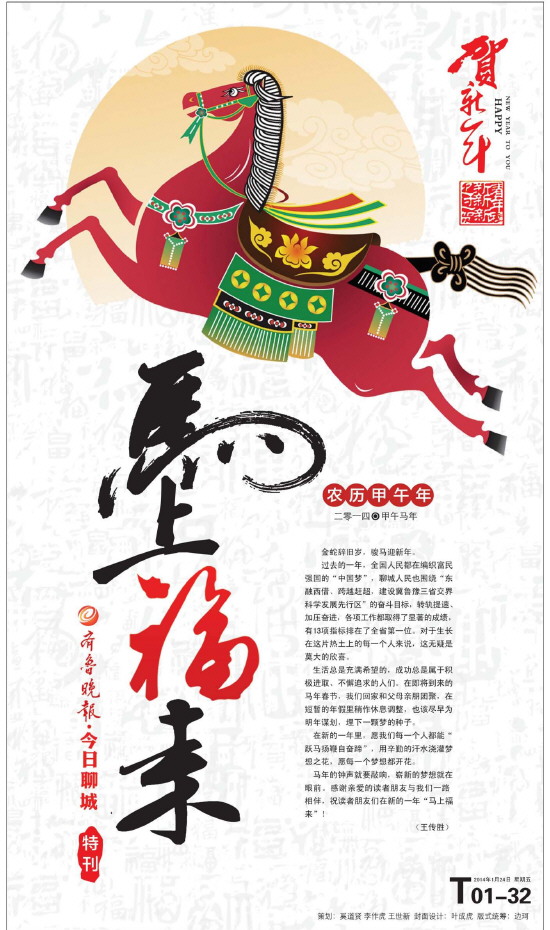 贺新年
HAPPY
NEW YEAR TO YOU
馬上福来
农历甲午年
二零一四 甲午马年
金蛇辞旧岁，骏马迎新年。
过去的一年，全国人民都在编织富民
强国的“中国梦”，聊城人民也围绕“东
融西借、跨越赶超，建设冀鲁豫三省交界
科学发展先行区”的奋斗目标，转轨提速、
加压奋进，各项工作都取得了显著的成绩，
有13项指标排在了全省第一位。对于生长
在这片热土上的每一个人来说，这无疑是
莫大的欣喜。
生活总是充满希望的，成功总是属于积
极进取、不懈追求的人们。在即将到来的
马年春节，我们回家和父母亲朋团聚，在
短暂的年假里稍作休息调整，也该尽早为
明年谋划，埋下一颗梦的种子。
在新的一年里，愿我们每一个人都能“
跃马扬鞭自奋蹄”，用辛勤的汗水浇灌梦
想之花，愿每一个梦想都开花。
马年的钟声就要敲响，崭新的梦想就在
眼前。感谢亲爱的读者朋友与我们一路
相伴，祝读者朋友们在新的一年“马上福
来”！
（王传胜）
齐鲁晚报·今日聊城
特刊
2014年1月24日 星期五
T01-32
策划：奚道贤 李作虎 王世新 封面设计：叶成虎 版式统筹：边珂